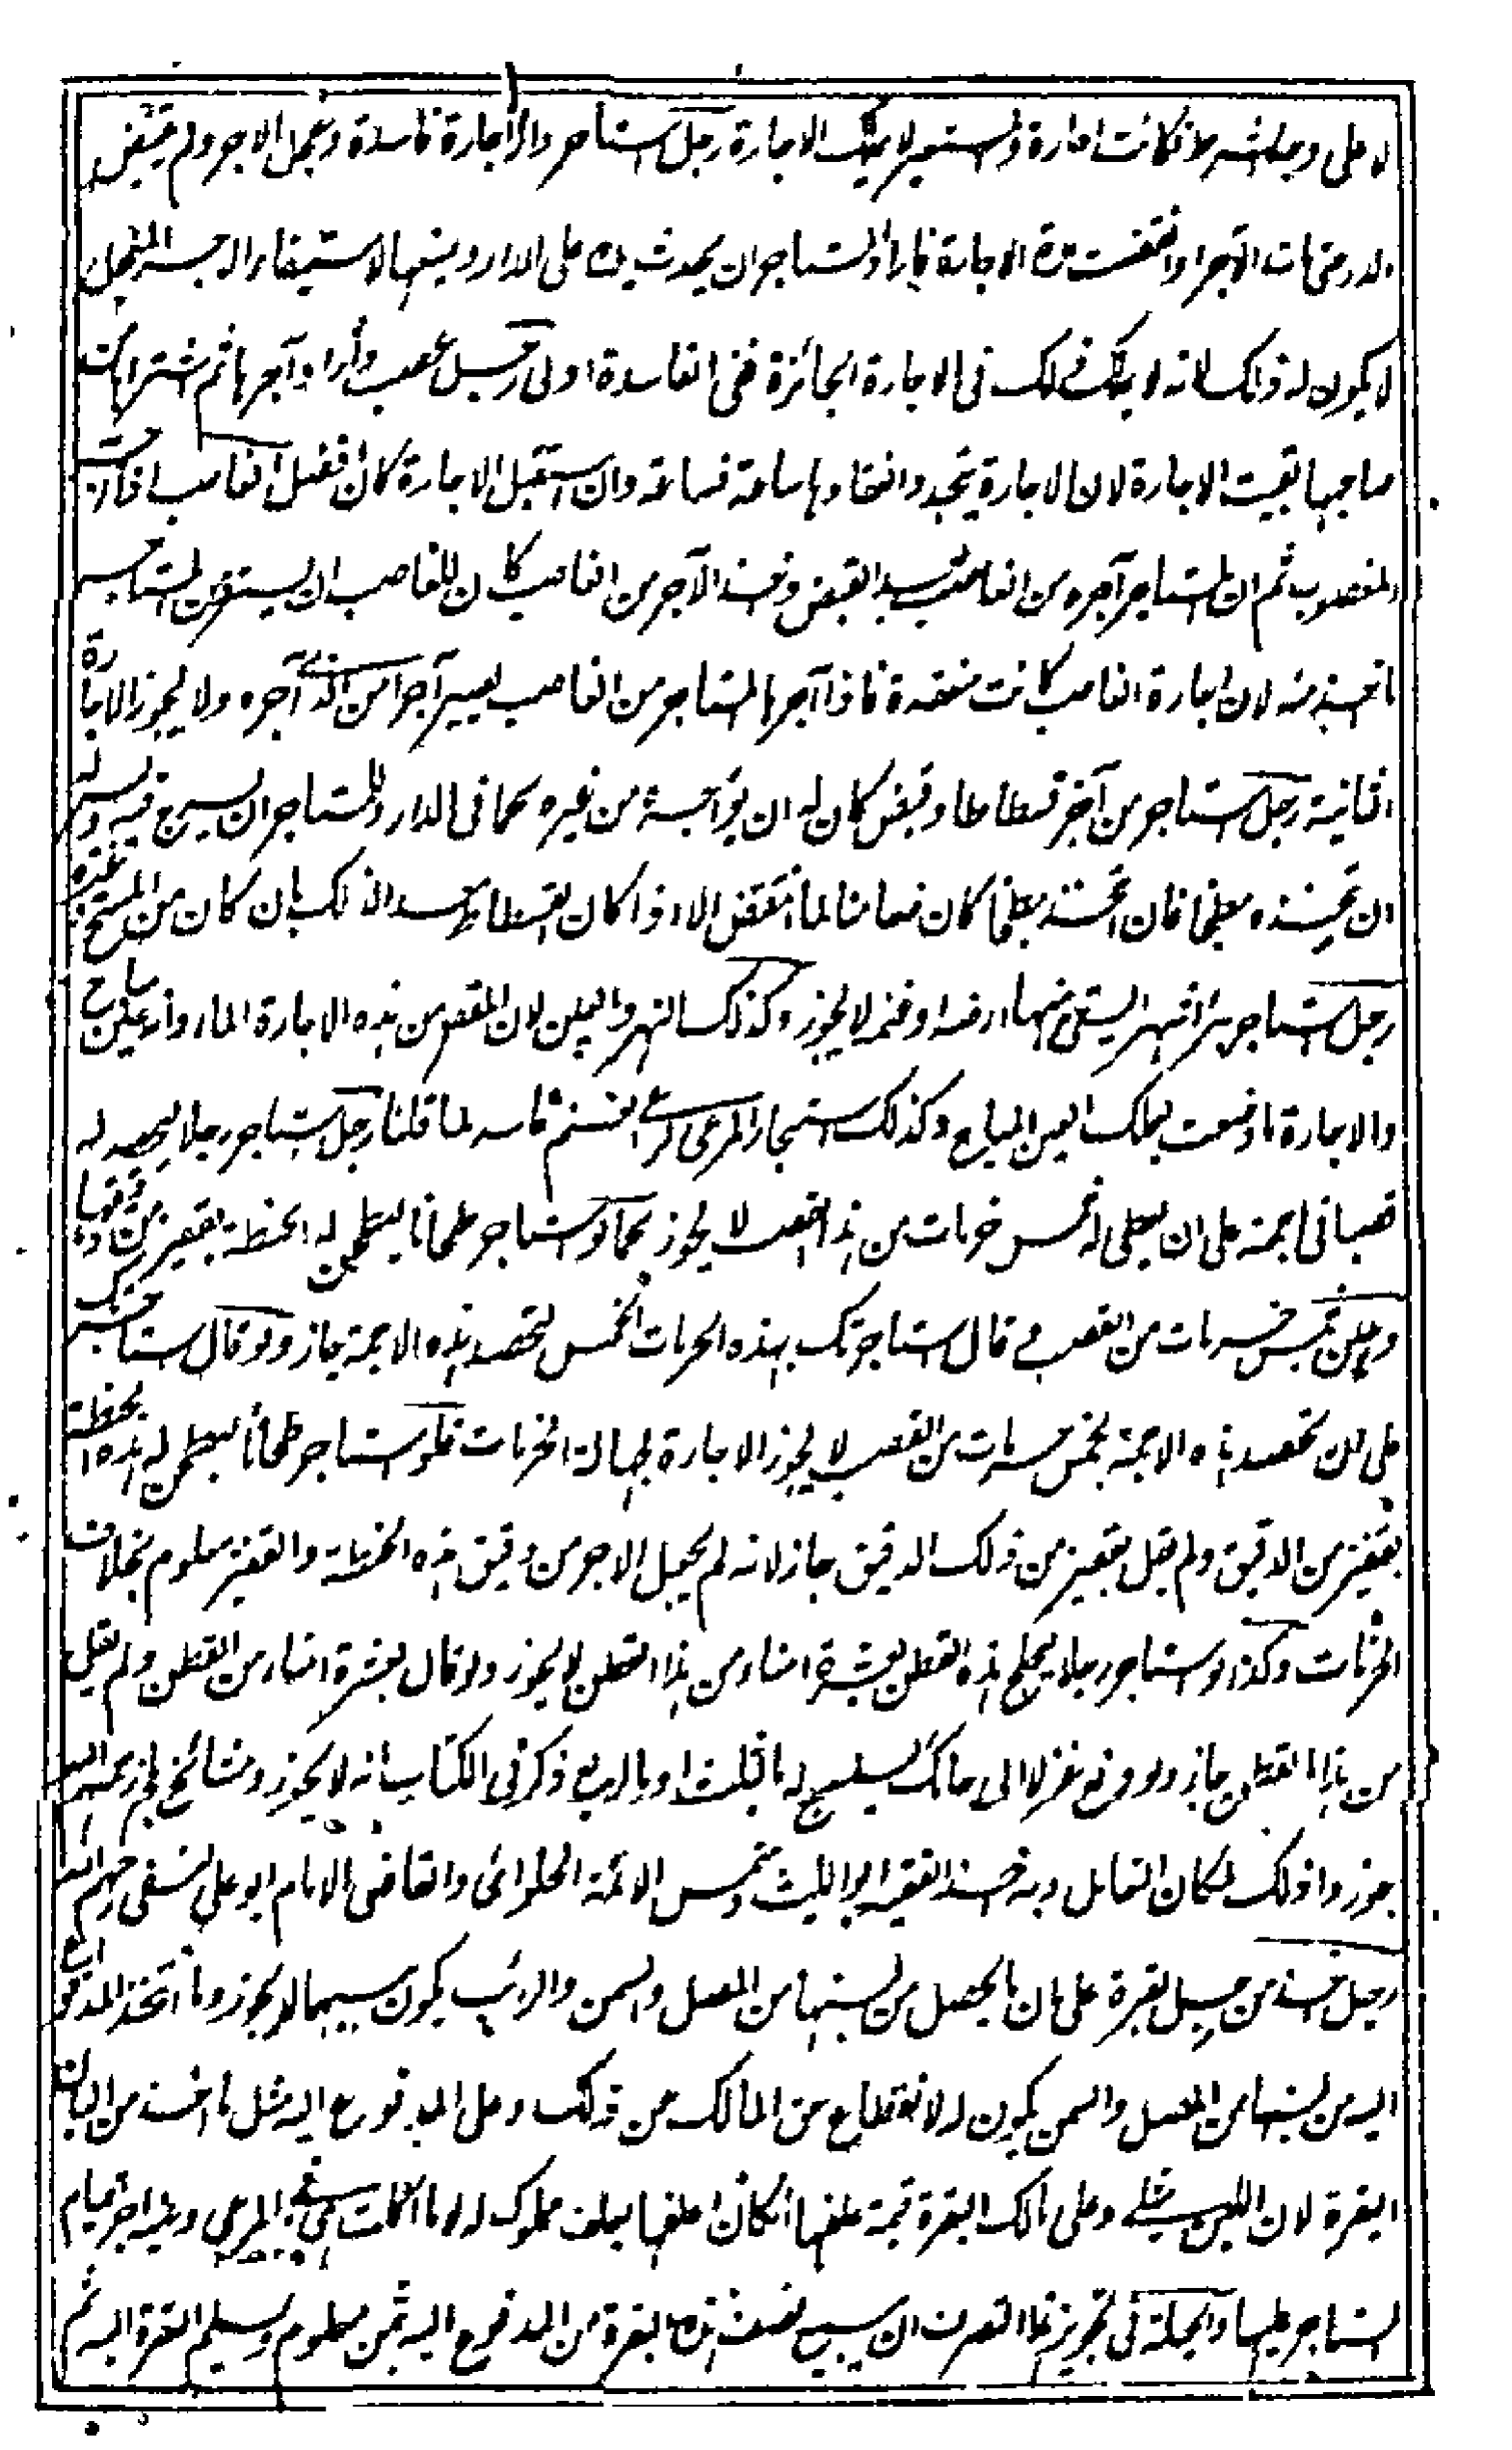 لا على وجه الشرط كانت اعارة والمستعير لا يملك الاجارة رجل استاجر دارا اجارة فاسدة وعجل الاجر ولم يقبض
الدار حتى مات الآجر او انقضت مدة الاجارة فاراد المستاجر ان يحدث يده على الدار ويمنعها لاستيفاء الاجر المعجل
لا يكون له ذلك لانه لا يملك ذلك في الاجارة الجائزة ففي الفاسدة اولى رجل غصب دارا وآجرها ثم اشتراها من
صاحبها بقيت الاجارة لان الاجارة يتجدد انعقادها ساعة فساعة وان استقبل الاجارة كان افضل الغاصب اذا آجر
المغصوب ثم ان المستاجر آجره من الغاصب بعد القبض واخذ الآجر من الغاصب كان للغاصب ان يسترد من المستاجر
ما اخذ منه لان اجارة الغاصب كانت منعقدة فاذا آجرها المستاجر من الغاصب يصير آجرا من الذي آجره ولا يجوز الاجارة
الثانية رجل استاجر من آخر فسطاطا وقبض كان له ان يؤاجره من غيره كما في الدار وللمستاجر ان يسرج فيه وليس له
ان يتخذه مطبخا فان اتخذه مطبخا كان ضامنا لما انتقض الا اذا كان الفسطاط معدا لذلك بان كان من المسح وغيره
رجل استاجر بئرا شهرا ليسقي منها ارضه او غنمه لا يجوز وكذلك النهر والعين لان المقصود من هذه الاجارة الماء وانه عين مباح
والاجارة ما وضعت لملك العين المباح وكذلك استيجار المرعى لرعي الغنم فاسد لما قلنا رجل استاجر رجلا ليحصد له
قصبا في اجمة على ان يعطي له خمس حزمات من هذا القصب لا يجوز كما لو استاجر طحانا ليطحن له الحنطة بقفيز من دقيقها
ولو عين خمس حزمات من القصب وقال استاجرتك بهذه الحزمات الخمس لتحصد هذه الاجمة جاز ولو قال استاجرتك
على ان تحصد هذه الاجمة بخمس حزمات من القصب لا يجوز الاجارة لجهالة الحزمات فلو استاجر طحانا ليطحن له هذه الحنطة
بقفيز من الدقيق ولم يقل بقفيز من ذلك الدقيق جاز لانه لم يجعل الاجر من دقيق هذه الحنطة والقفيز معلوم بخلاف
الحزمات وكذا لو استاجر رجلا ليحلج هذه القطن بعشرة امناء من هذا القطن لا يجوز ولو قال بعشرة امناء من القطن ولم يقل
من هذا القطن جاز ولو دفع غزلا الى حائك لينسج له بالثلث او بالربع ذكر في الكتاب انه لا يجوز ومشائخ بلخ رحمهم الله
جوزوا ذلك لمكان التعامل وبه اخذ الفقيه ابو الليث وشمس الائمة الحلوائي والقاضي الامام ابو علي النسفي رحمهم الله
رجل اخذ من رجل بقرة على ان ما يحصل من لبنها من المصل والسمن والرائب يكون بينهما لا يجوز وما اتخذ المدفوع
اليه من لبنها من المصل والسمن يكون له لانقطاع حق المالك عن ذلك وعلى المدفوع اليه مثل ما اخذ من البان
البقرة لان اللبن مثلي وعلى مالك البقرة قيمة علفها ان كان علفها بعلف مملوك له لا ما اكلت في المرعى وعليه اجر قيام
المستاجر عليها والحيلة في تجويز هذا التصرف ان يبيع نصف هذه البقرة من المدفوع اليه بثمن معلوم ويسلم البقرة اليه ثم